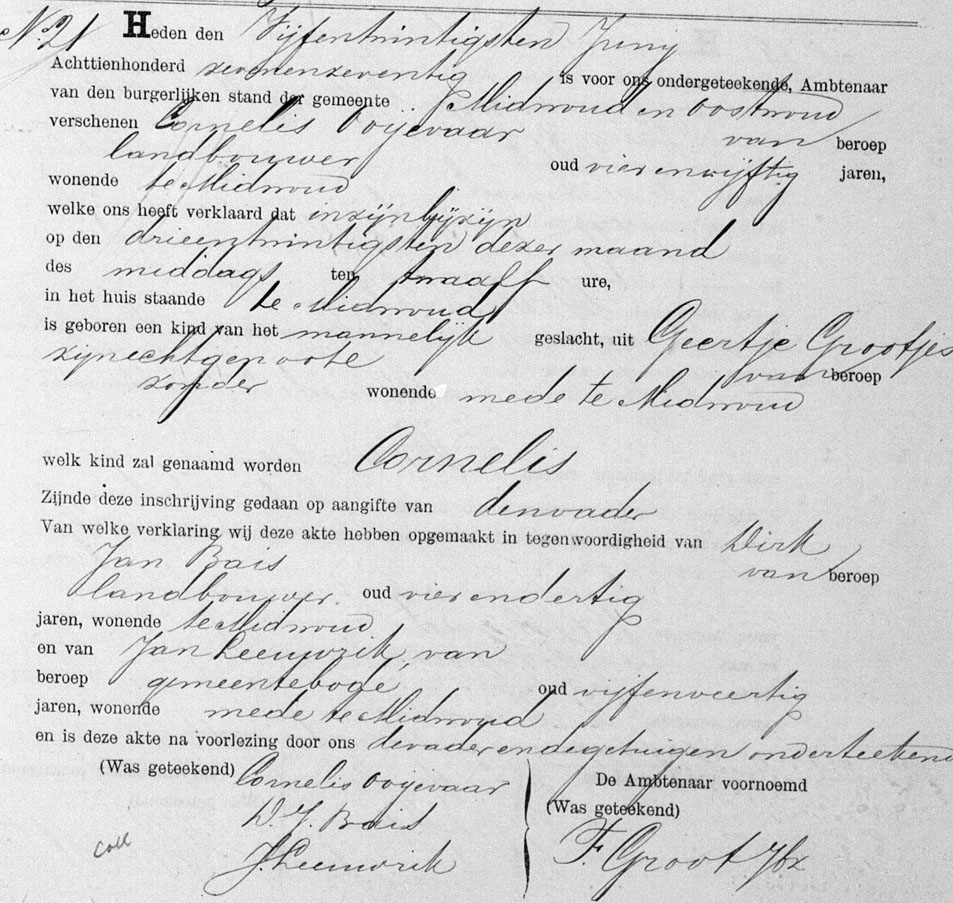 No 21 Heden den Vijfentwintigsten Juny
Achttienhonderd zevenenzeventig is voor ons ondergeteekende, Ambtenaar
van den burgerlijken stand der gemeente Midwoud en Oostwoud
verschenen Cornelis Ooyevaar van beroep
landbouwer oud vierenvijftig jaren,
wonende te Midwoud
welke ons heeft verklaard dat in zijn bijzijn
op den drieentwintigsten dezer maand
des middags ten twaalf ure,
in het huis staande te Midwoud
is geboren een kind van het mannelijk geslacht, uit Geertje Grootjes
zijn echtgenoote van beroep
zonder wonende mede te Midwoud
welk kind zal genaamd worden Cornelis
Zijnde deze inschrijving gedaan op aangifte van den vader
Van welke verklaring wij deze akte hebben opgemaakt in tegenwoordigheid van Dirk
Jan Bais van beroep
landbouwer oud vierendertig
jaren, wonende te Midwoud
en van Jan Leeuwrik van
beroep gemeentebode oud vijfenveertig
jaren, wonende mede te Midwoud
en is deze akte na voorlezing door ons de vader en de getuigen onderteekend
(Was geteekend) Cornelis Ooyevaar
D. J. Bais
J. Leeuwrik
De Ambtenaar voornoemd
(Was geteekend)
F. Groot Jbz
coll